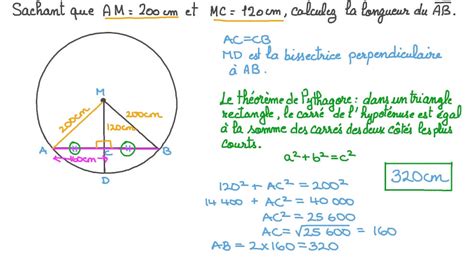 Sachant que AM = 200 cm et MC = 120 cm, calculez la longueur du AB.
AC = CB
MD est la bissectrice perpendiculaire
à AB.
Le théorème de Pythagore : dans un triangle
rectangle, le carré de l'hypoténuse est égal
à la somme des carrés des deux côtés les plus
courts.
a² + b² = c²
M
200cm
200cm
120cm
A
C
B
160cm
D
120² + AC² = 200²
14 400 + AC² = 40 000
AC² = 25 600
AC = √25 600 = 160
AB = 2x160 = 320
320cm